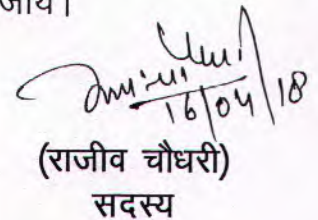 जाय।
16/04/18
(राजीव चौधरी)
सदस्य